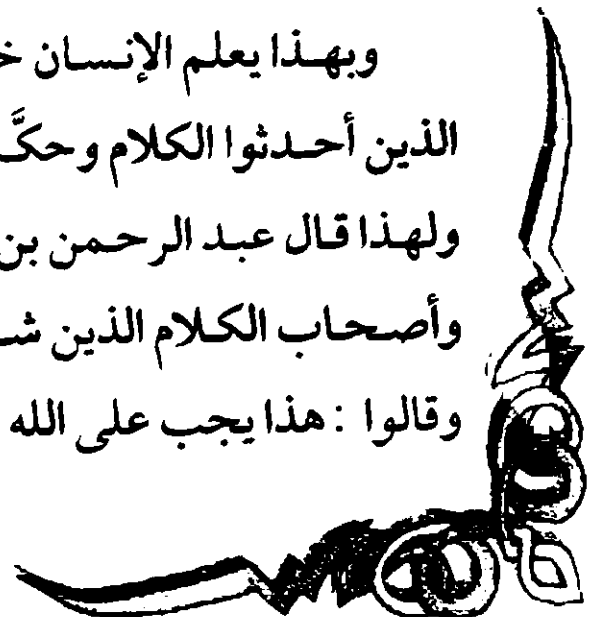 وبهذا يعلم الإنسان
الذين أحدثوا الكلام
ولهذا قال عبد الرحمن بن
وأصحاب الكلام الذين
وقالوا : هذا يجب على الله